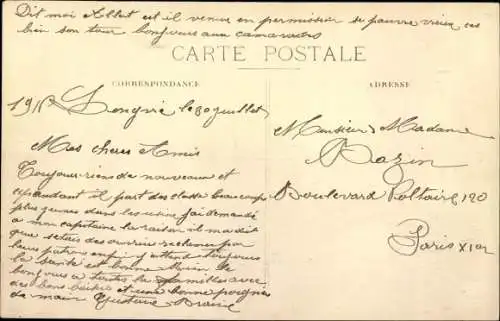 Dit moi Albert est il venue en permission se pauvre vieux
bien son tour bonjours aux camarades
CARTE POSTALE
CORRESPONDANCE
ADRESSE
1915 Longvic le 30 juillet
Mes chers Amis
Toujours rien de nouveaux et
cependant il part des classe beaucoup
plus jeunes dans les usine j'ai demandé
a mon capitaine la raison il m'a dit
que setais des ouvrier reclamer par
leurs patrons enfin j'attend toujours
la santé est bonne
bonjours a toutes la familles avec
des bons baiser et une bonne poignés
de main Gustave
Monsieur Madame
Bazin
Boulevard Voltaire 120
Paris XIer